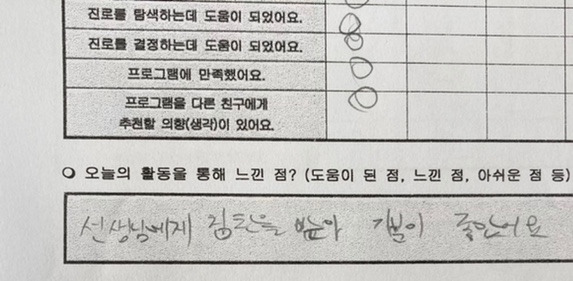 진로를 탐색하는데 도움이 되었어요.
진로를 결정하는데 도움이 되었어요.
프로그램에 만족했어요.
프로그램을 다른 친구에게
추천할 의향(생각)이 있어요.
오늘의 활동을 통해 느낀 점? (도움이 된 점, 느낀 점, 아쉬운 점 등)
선생님에게 칭찬을 받아 기분이 좋았어요